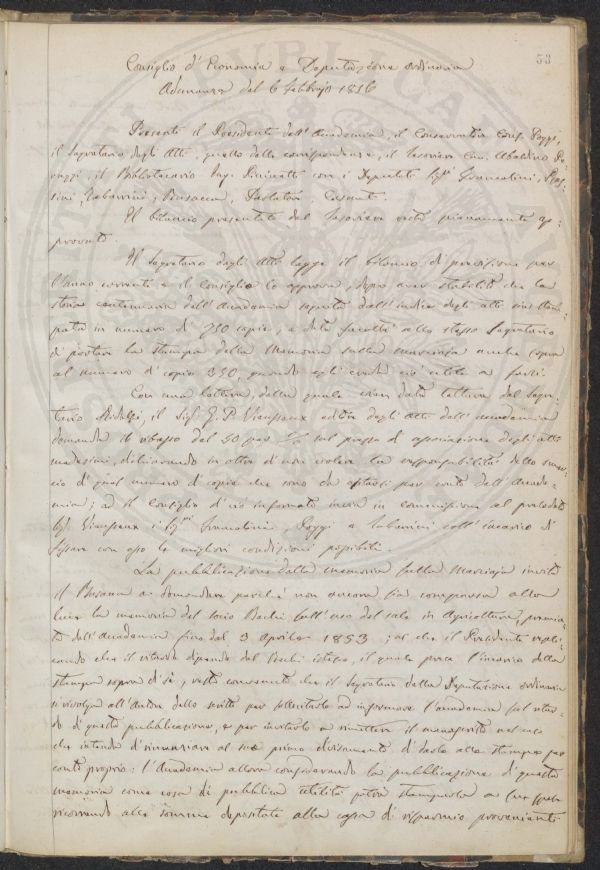 53
Consiglio d'Economia e Deputazione ordinaria
Adunanza del 6 Febbrajo 1856
Presenti il Presidente dell'Accademia, il Conservatore Conf. Poggi,
il Segretario degli Atti, quello delle corrispondenze, il Tesoriere Cav. Ubaldino Pe-
ruzzi, il Bibliotecario Ing. Pinucci con i Deputati Sigri Francolini,
Tabarrini, Busacca, Parlatore,
Il bilancio presentato dal Tesoriere restò pienamente ap-
provato.
Il Segretario degli Atti legge il bilancio di previsione per
l'anno corrente e il Consiglio lo approva, dopo aver stabilito che la
storia centennaria dell'Accademia seguita dall'indice degli atti sia stam-
pata in numero di 750 copie, e data facoltà allo stesso Segretario
di portare la stampa della Memoria sulla marciaja anche sopra
al numero d'copie 350, quando egli creda ciò utile a farsi.
Con una lettera, della quale vien data lettura dal Segre-
tario Ridolfi, il Sigr G. P. Vieusseux editore degli Atti dell'Accademia
domanda il ribasso del 50 per % sul prezzo di associazione degli atti
medesimi, dichiarando in oltre di non volere la responsabilità dello smer-
cio d'quel numero d'copie che sono ora esitate per conto dell'Accade-
mia; ed il Consiglio d'ciò informato invia in commissione al prelodato
Sigr Vieusseux i Sigri Francolini, Poggi e Tabarrini coll'incarico di
fissare con esso le migliori condizioni possibili.
La pubblicazione della memoria sulla Marciaja invita
il Busacca a domandare perché non ancora sia comparsa alla
luce la memoria del socio Bechi sull'uso del sale in Agricoltura, premia-
ta dall'Accademia fino dal 3 Aprile 1853; al che il Presidente repli-
cando che il ritardo dipende dal Bechi istesso, il quale prese l'incarico della
stampa sopra di sè, restò convenuto che il Segretario della Deputazione ordinaria
si rivolga all'Autore dello scritto per sollecitarlo ad informare l'Accademia sul ritar-
do di questa pubblicazione, e per invitarlo a rimettere il manoscritto nel caso
che intenda d'rinunziare al suo primo divisamento di darlo alla stampa per
conto proprio: l'Accademia allora considerando la pubblicazione di questa
memoria come cosa di pubblica utilità potrà stamparla a sue spese
ricorrendo alle somme depositate alla cassa di risparmio provenienti